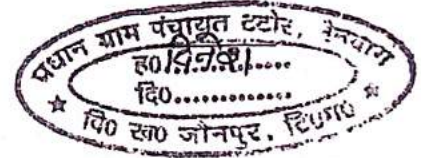 प्रधान ग्राम पंचायत टटोर, नैनबाग
ह०
दि०.............
वि० ख० जौनपुर, टि०ग०